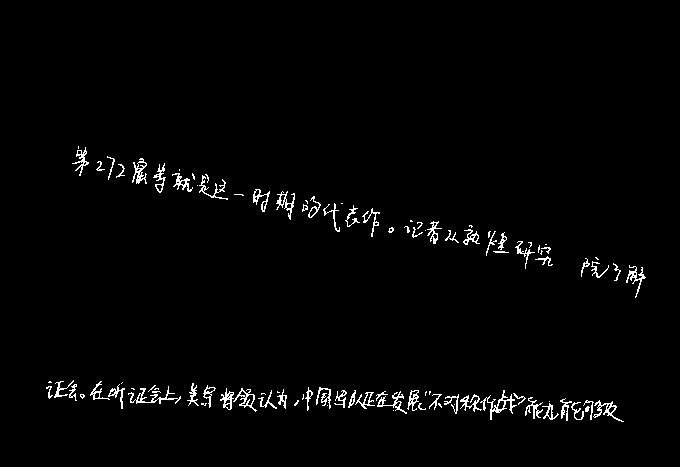 第272窟等就是这一时期的代表作。记者从敦煌研究院了解
证会。在听证会上,美军将领认为,中国军队正在发展“不对称作战”能力,能够